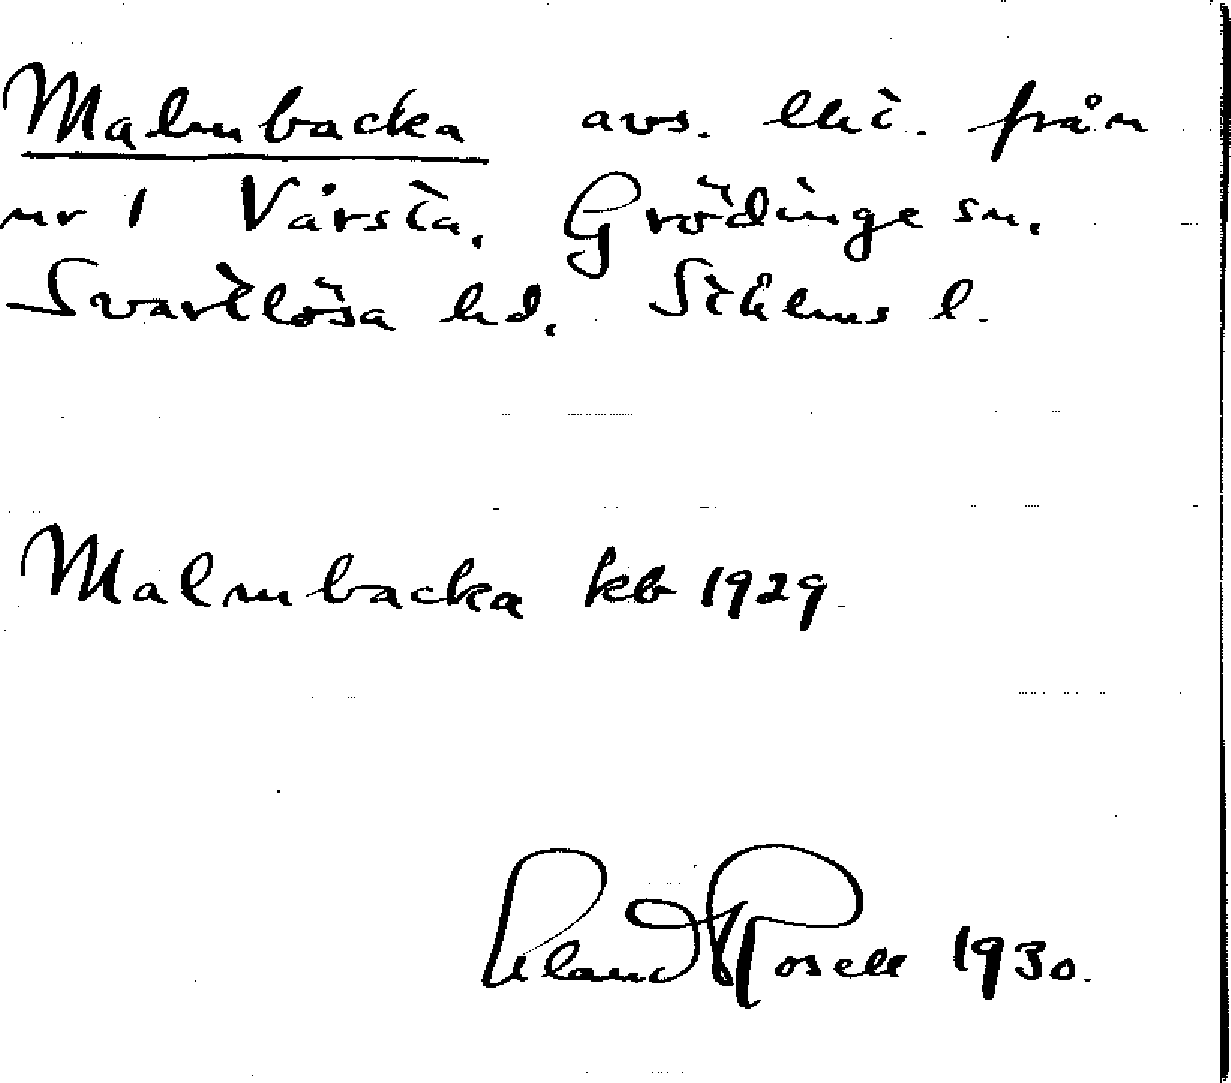 Malmbacka avs. lht. från
nr 1 Vårsta, Grödinge sn,
Svartlösa hd, Sthlms l.
Malmbacka kb 1929
Erland Rosell 1930.